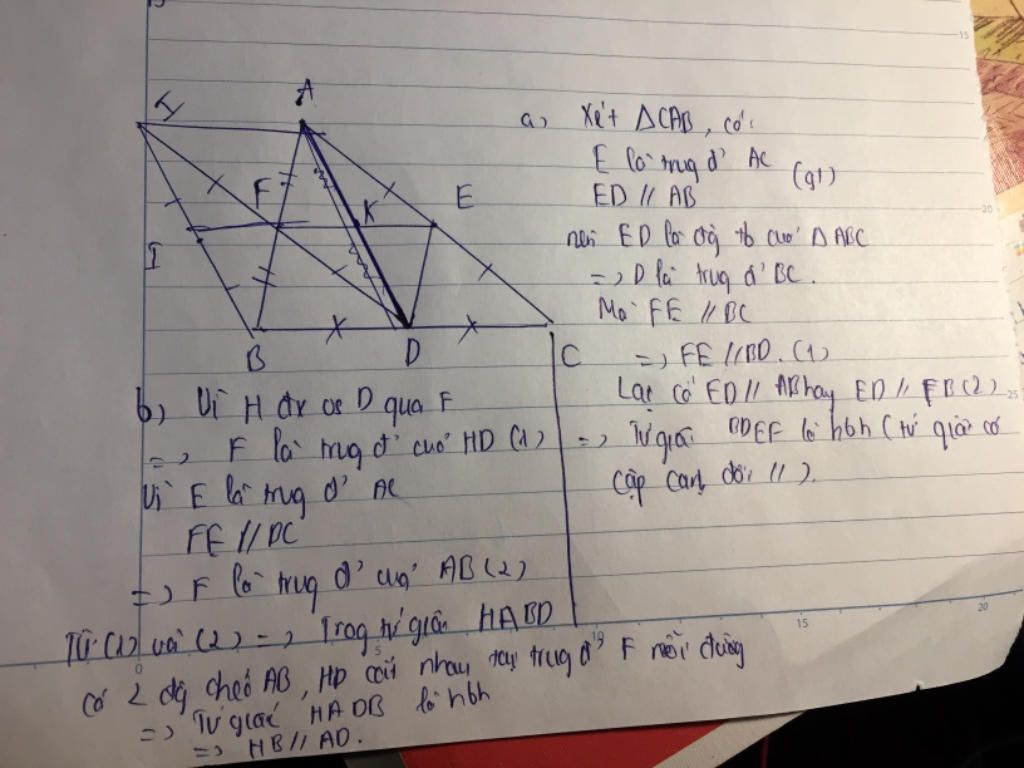 H
A
F
K
E
I
B
D
C
a, Xét ΔCAB, có:
E là trug đ' AC
(gt)
ED // AB
nên ED là đg tb cuả ΔABC
=> D là trug đ' BC.
Mà FE // BC
=> FE // BD. (1)
Lại có ED // AB hay ED // FB (2)
=> Tứ giác BDEF là hbh (tứ giác có
cặp cạnh đối //).
b, Vì H đx vs D qua F
=> F là trug đ' cuả HD (1)
Vì E là trug đ' AC
FE // DC
=> F là trug đ' cuả AB (2)
Từ (1) và (2) => Trog tứ giác HABD
có 2 đg chéo AB, HD cắt nhau tại trug đ' F mỗi đường
=> Tứ giác HADB là hbh
=> HB // AD.
15
20
25
0
5
10
15
20